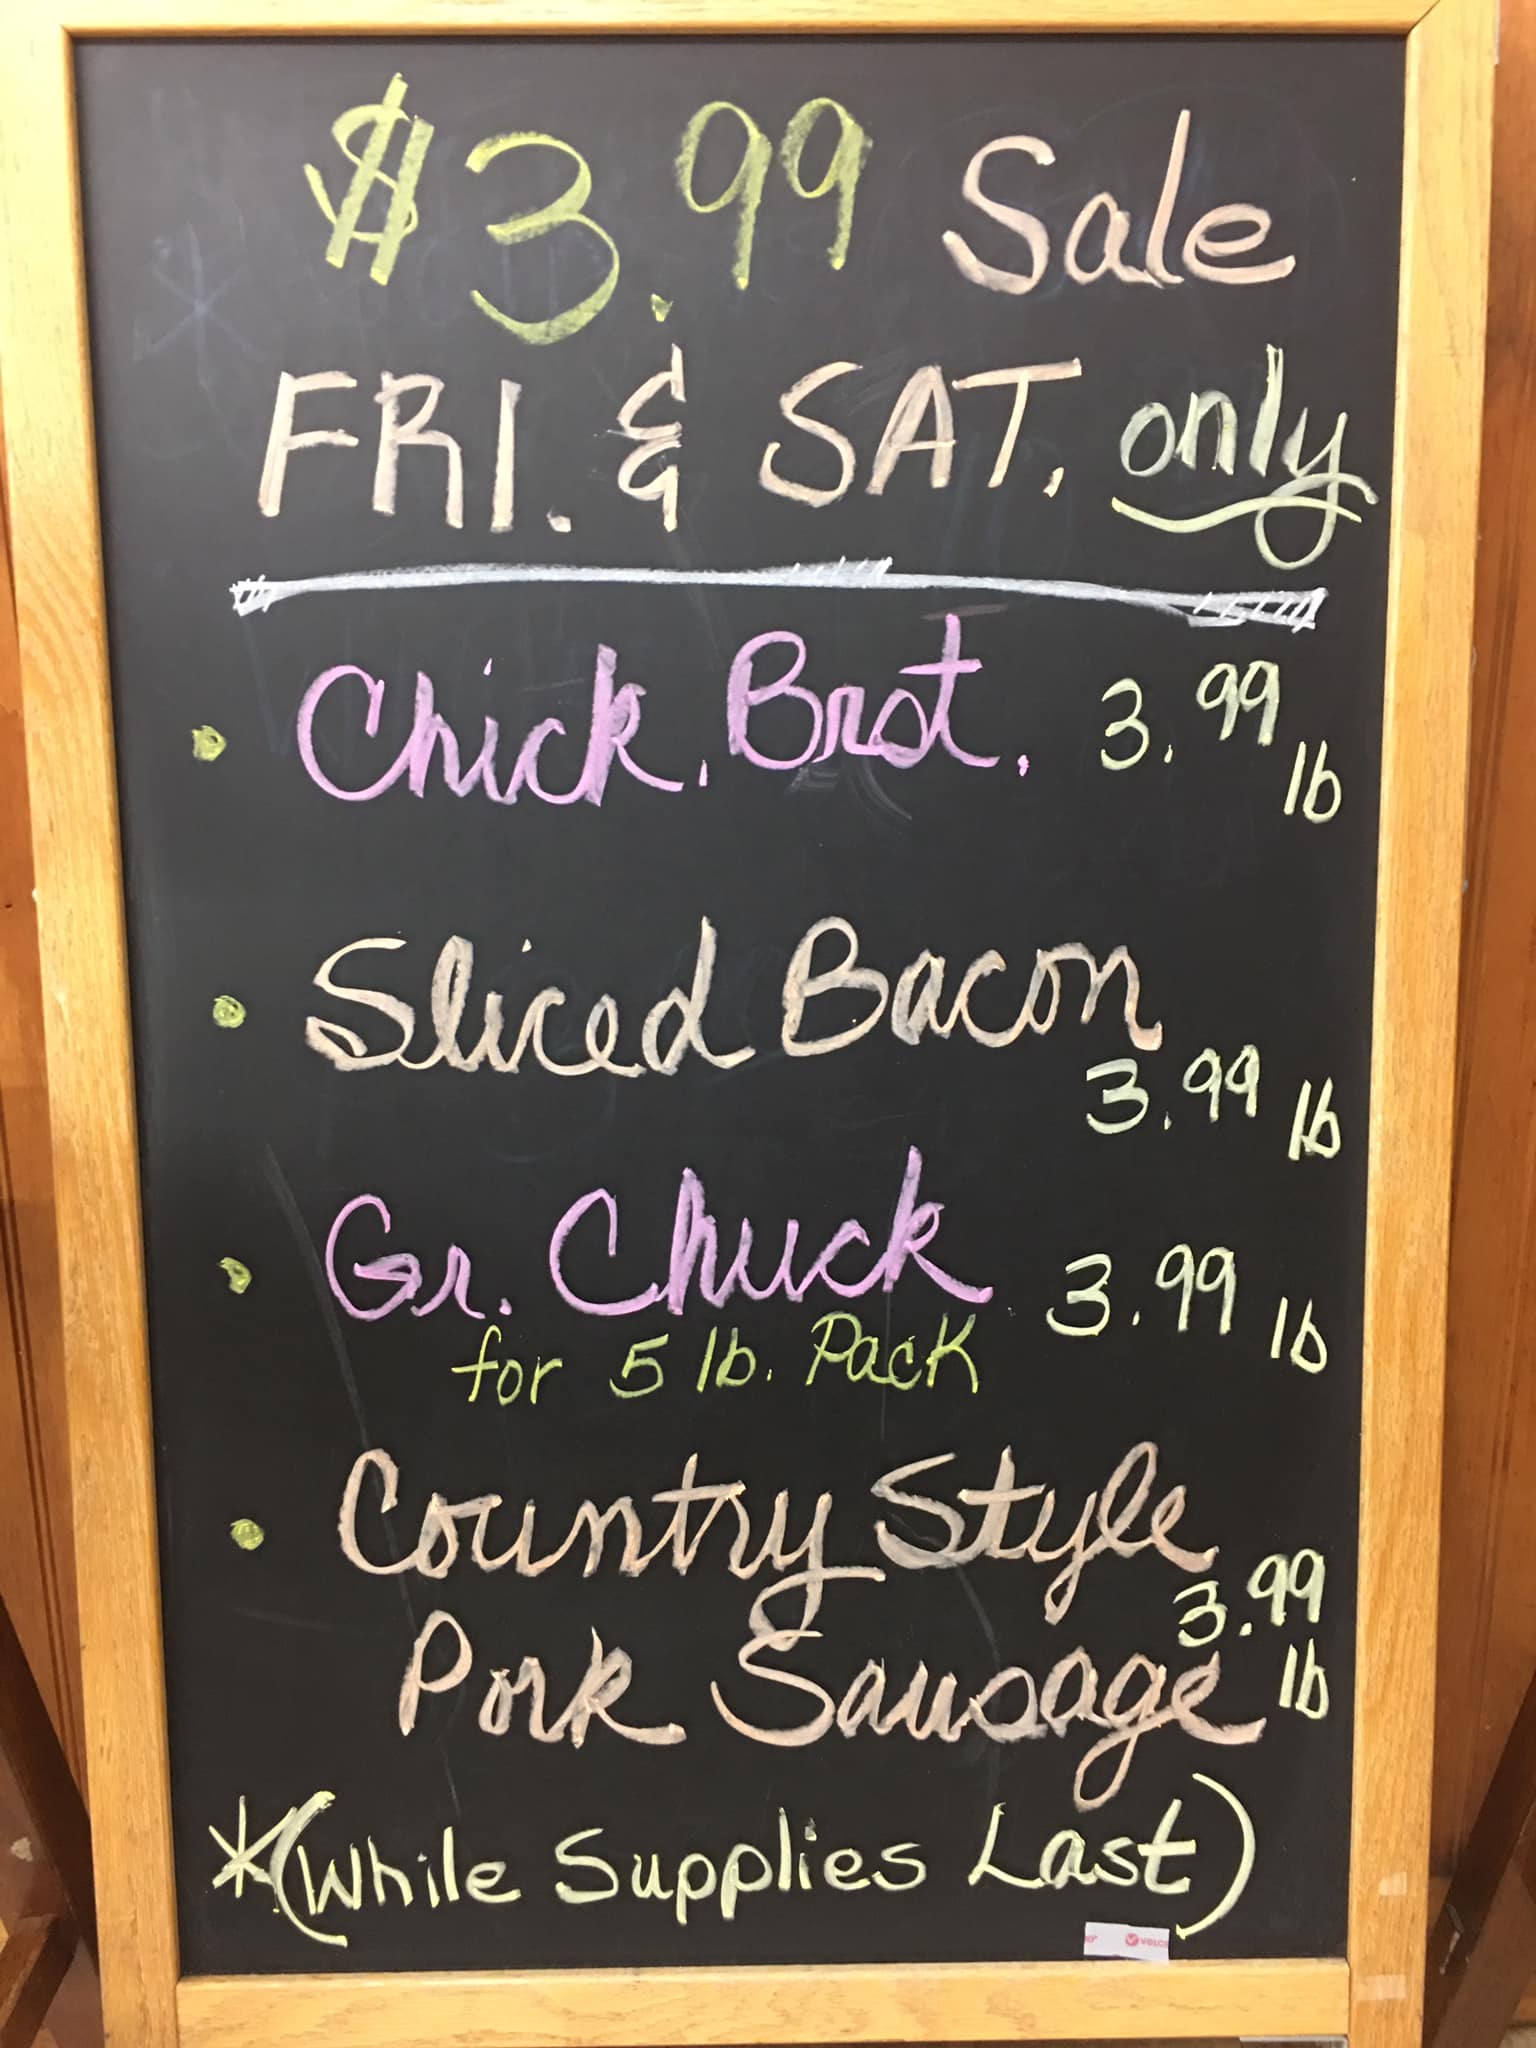 $3.99 Sale
FRI. & SAT. only
• Chick. Brst. 3.99 lb
• Sliced Bacon
3.99 lb
• Gr. Chuck 3.99 lb
for 5 lb. Pack
• Country Style
3.99
Pork Sausage lb
*(While Supplies Last)